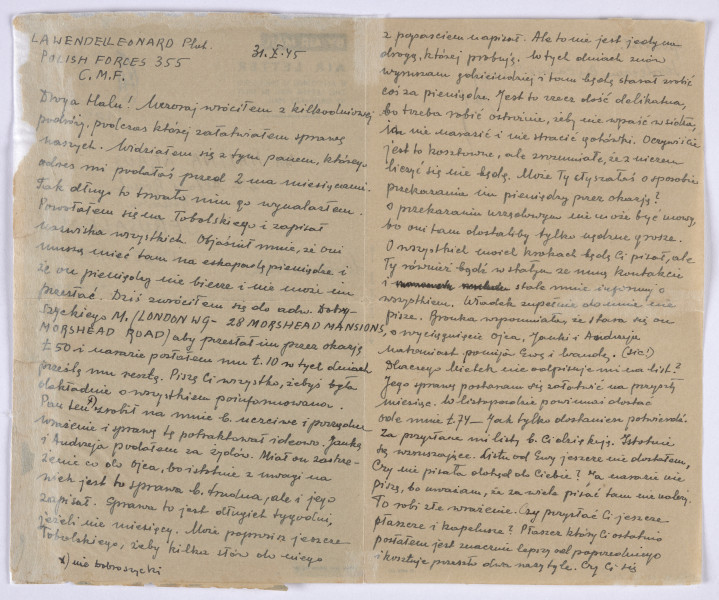 LAWENDEL LEONARD Plut.
POLISH FORCES 355
C.M.F.
31.X.45
Droga Halu! Wczoraj wróciłem z kilkodniowej
podróży, podczas której załatwiałem sprawę
naszych. Widziałem się z tym panem, którego
adres mi podałaś przed 2 ma miesiącami.
Tak długo to trwało nim go wynalazłem.
Powołałem się na Tobolskiego i zapisał
nazwiska wszystkich. Objaśnił mnie, że oni
muszą mieć tam na eskapadę pieniądze i
że on pieniędzy nie bierze i nie może im
przesłać. Dziś zwróciłem się do adw. Dobro-
szyckiego M. (LONDON W9 - 28 MORSHEAD MANSIONS,
MORSHEAD ROAD) aby przesłał im przez okazję
£ 50 i narazie posłałem mu £. 10 w tych dniach
prześlę mu resztę. Piszę Ci wszystko, żebyś była
dokładnie o wszystkiem poinformowana.
Pan ten x) zrobił na mnie b. uczciwe i porządne
wrażenie i sprawę tę potraktował ideowo. Jankę
i Andrzeja podałem za żydów. Miał on zastrze-
żenie co do ojca, bo istotnie z uwagi na
wiek jest to sprawa b. trudna, ale i jego
zapisał. Sprawa to jest długich tygodni,
jeżeli nie miesięcy. Może poprosisz jeszcze
Tobolskiego, żeby kilka słów do niego
x) nie dobroszycki
z poparciem napisał. Ale to nie jest jedyna
droga, której próbuję. W tych dniach znów
wyruszam gdzieindziej i tam będę starał zrobić
coś za pieniądze. Jest to rzecz dość delikatna,
bo trzeba robić ostrożnie, żeby nie wpaść w sidła,
nie narazić i nie stracić gotówki. Oczywiście
jest to kosztowne, ale zrozumiałe, że z niczem
liczyć się nie będę. Może Ty słyszałaś o sposobie
przekazania im pieniędzy przez okazję?
O przekazaniu urzędowym nie może być mowy,
bo oni tam dostaliby tylko nędzne grosze.
O wszystkich moich krokach będę Ci pisał, ale
Ty również bądź w stałym ze mną kontakcie
i stale mnie informuj o
wszystkiem. Władek zupełnie do mnie nie
pisze. Bronka wspominała, że stara się on
o wyciągnięcie ojca, Janki i Andrzeja
natomiast pomija Ewę i Wandę. (sic!)
Dlaczego Mietek nie odpisuje mi na list?
Jego sprawę postaram się załatwić na przyszły
miesiąc. W listopadzie powinnaś dostać
ode mnie £.74— Jak tylko dostaniesz potwierdź.
Za przysłane mi listy b. Ci dziękuję. Istotnie
są wzruszające. Listu od Ewy jeszcze nie dostałem,
Czy nie pisała dotąd do Ciebie? Ja narazie nie
piszę, bo uważam, że za wiele pisać tam nie należy.
To robi złe wrażenie. Czy przysłać Ci jeszcze
płaszcze i kapelusze? Płaszcz który Ci ostatnio
posłałem jest znacznie lepszy od poprzedniego
i kosztuje przeszło dwa razy tyle. Czy Ci się